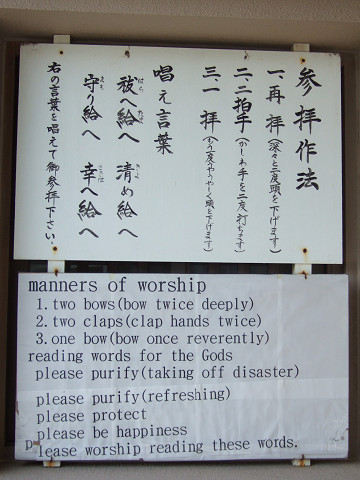 参拝作法
一、再拝(深々と二度頭を下げます)
二、二拍手(かしわ手を二度打ちます)
三、一拝(もう一度うやうやしく頭を下げます)
唱え言葉
祓へ給へ 清め給へ
守り給へ 幸へ給へ
右の言葉を唱えて御参拝下さい。
manners of worship
1.two bows(bow twice deeply)
2.two claps(clap hands twice)
3.one bow(bow once reverently)
reading words for the Gods
please purify(taking off disaster)
please purify(refreshing)
please protect
please be happiness
please worship reading these words.